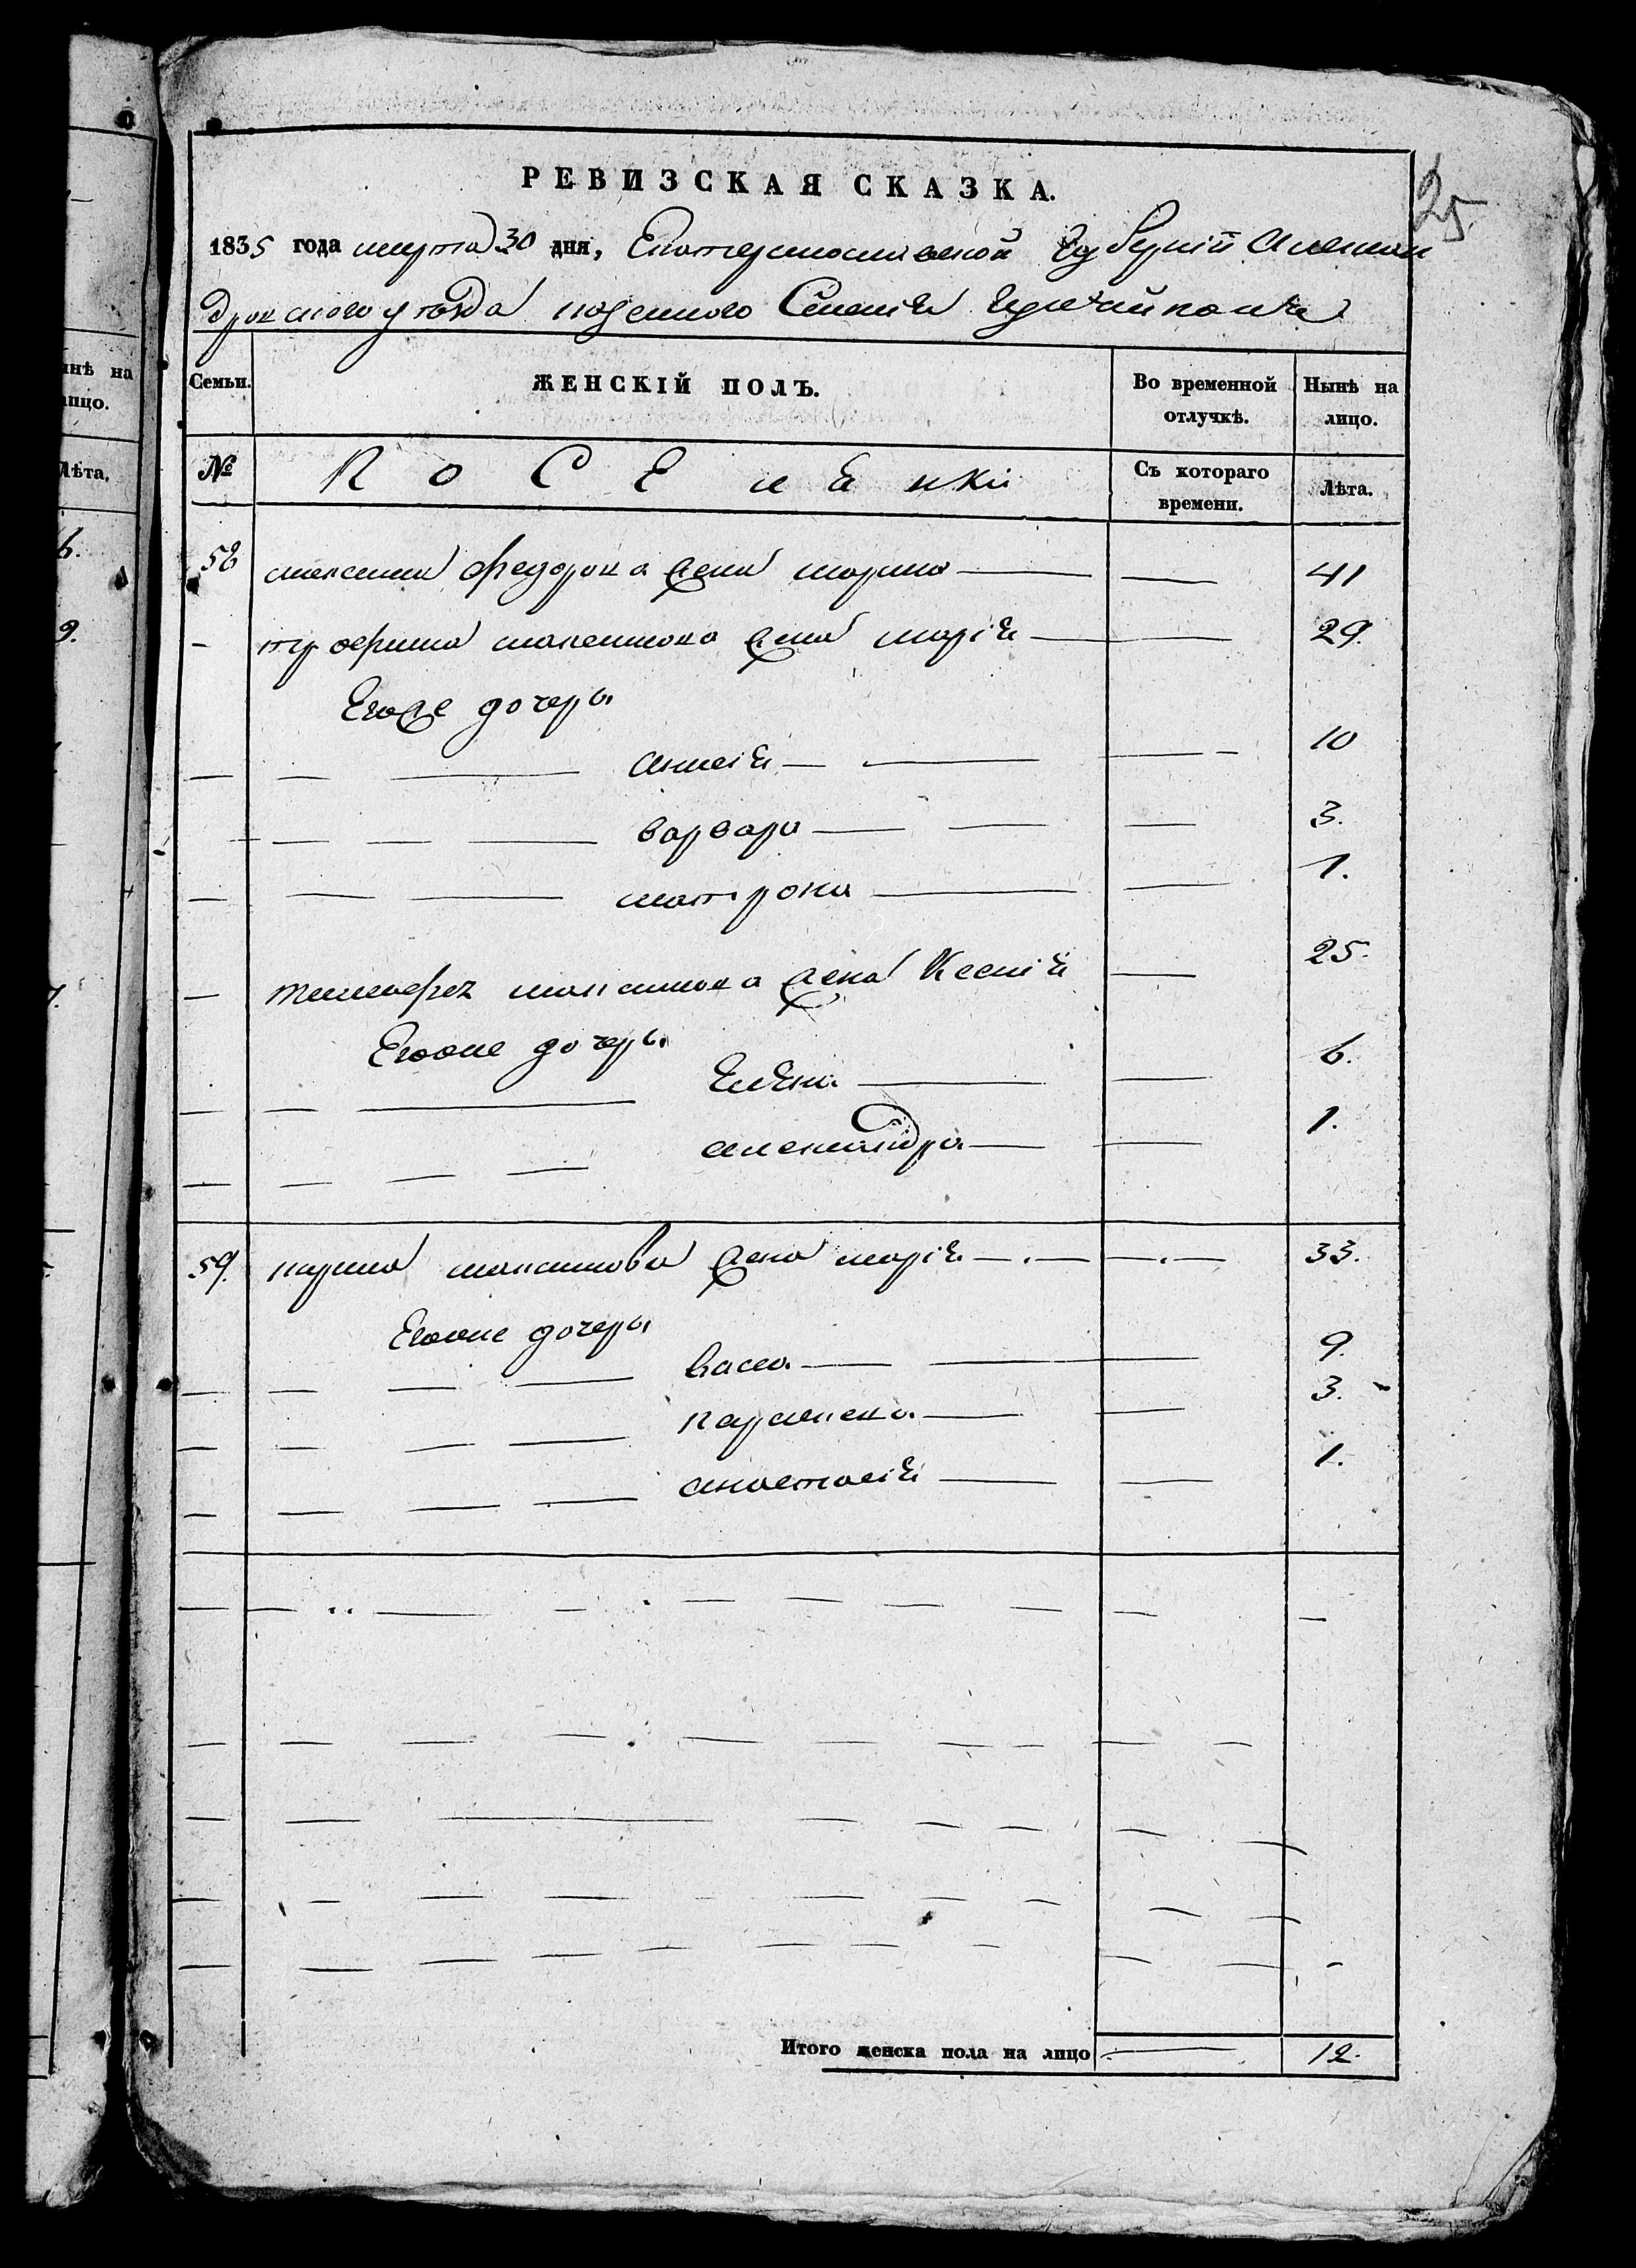 25.
РЕВИЗСКАЯ СКАЗКА.
1835 года марта 30 дня, Екатеринославской Губернiи Алексан
дровского уѣзда казенного Селенiя Гуляйполя
нѣ на
лицо.
Семьи.
ЖЕНСКІЙ ПОЛЪ.
Во временной отлучкѣ.
Нынѣ на лицо.
Лѣта.
№
ПОСЕЛянКи
Съ котораго времени.
Лѣта.
58 максима Федорова жена марина 41
трофима максимова жена марiя 29.
Егоже дочеры
анисiя 10
варвара 3.
матрона 1.
тимофея максимова жена Ксенiя 25.
Егоже дочеры
Елена 6.
александра 1.
59. карпа максимова жена марiя 33.
Егоже дочеры
васса 9.
параскева 3.
анастасiя 1.
Итого женска пола на лицо 12.